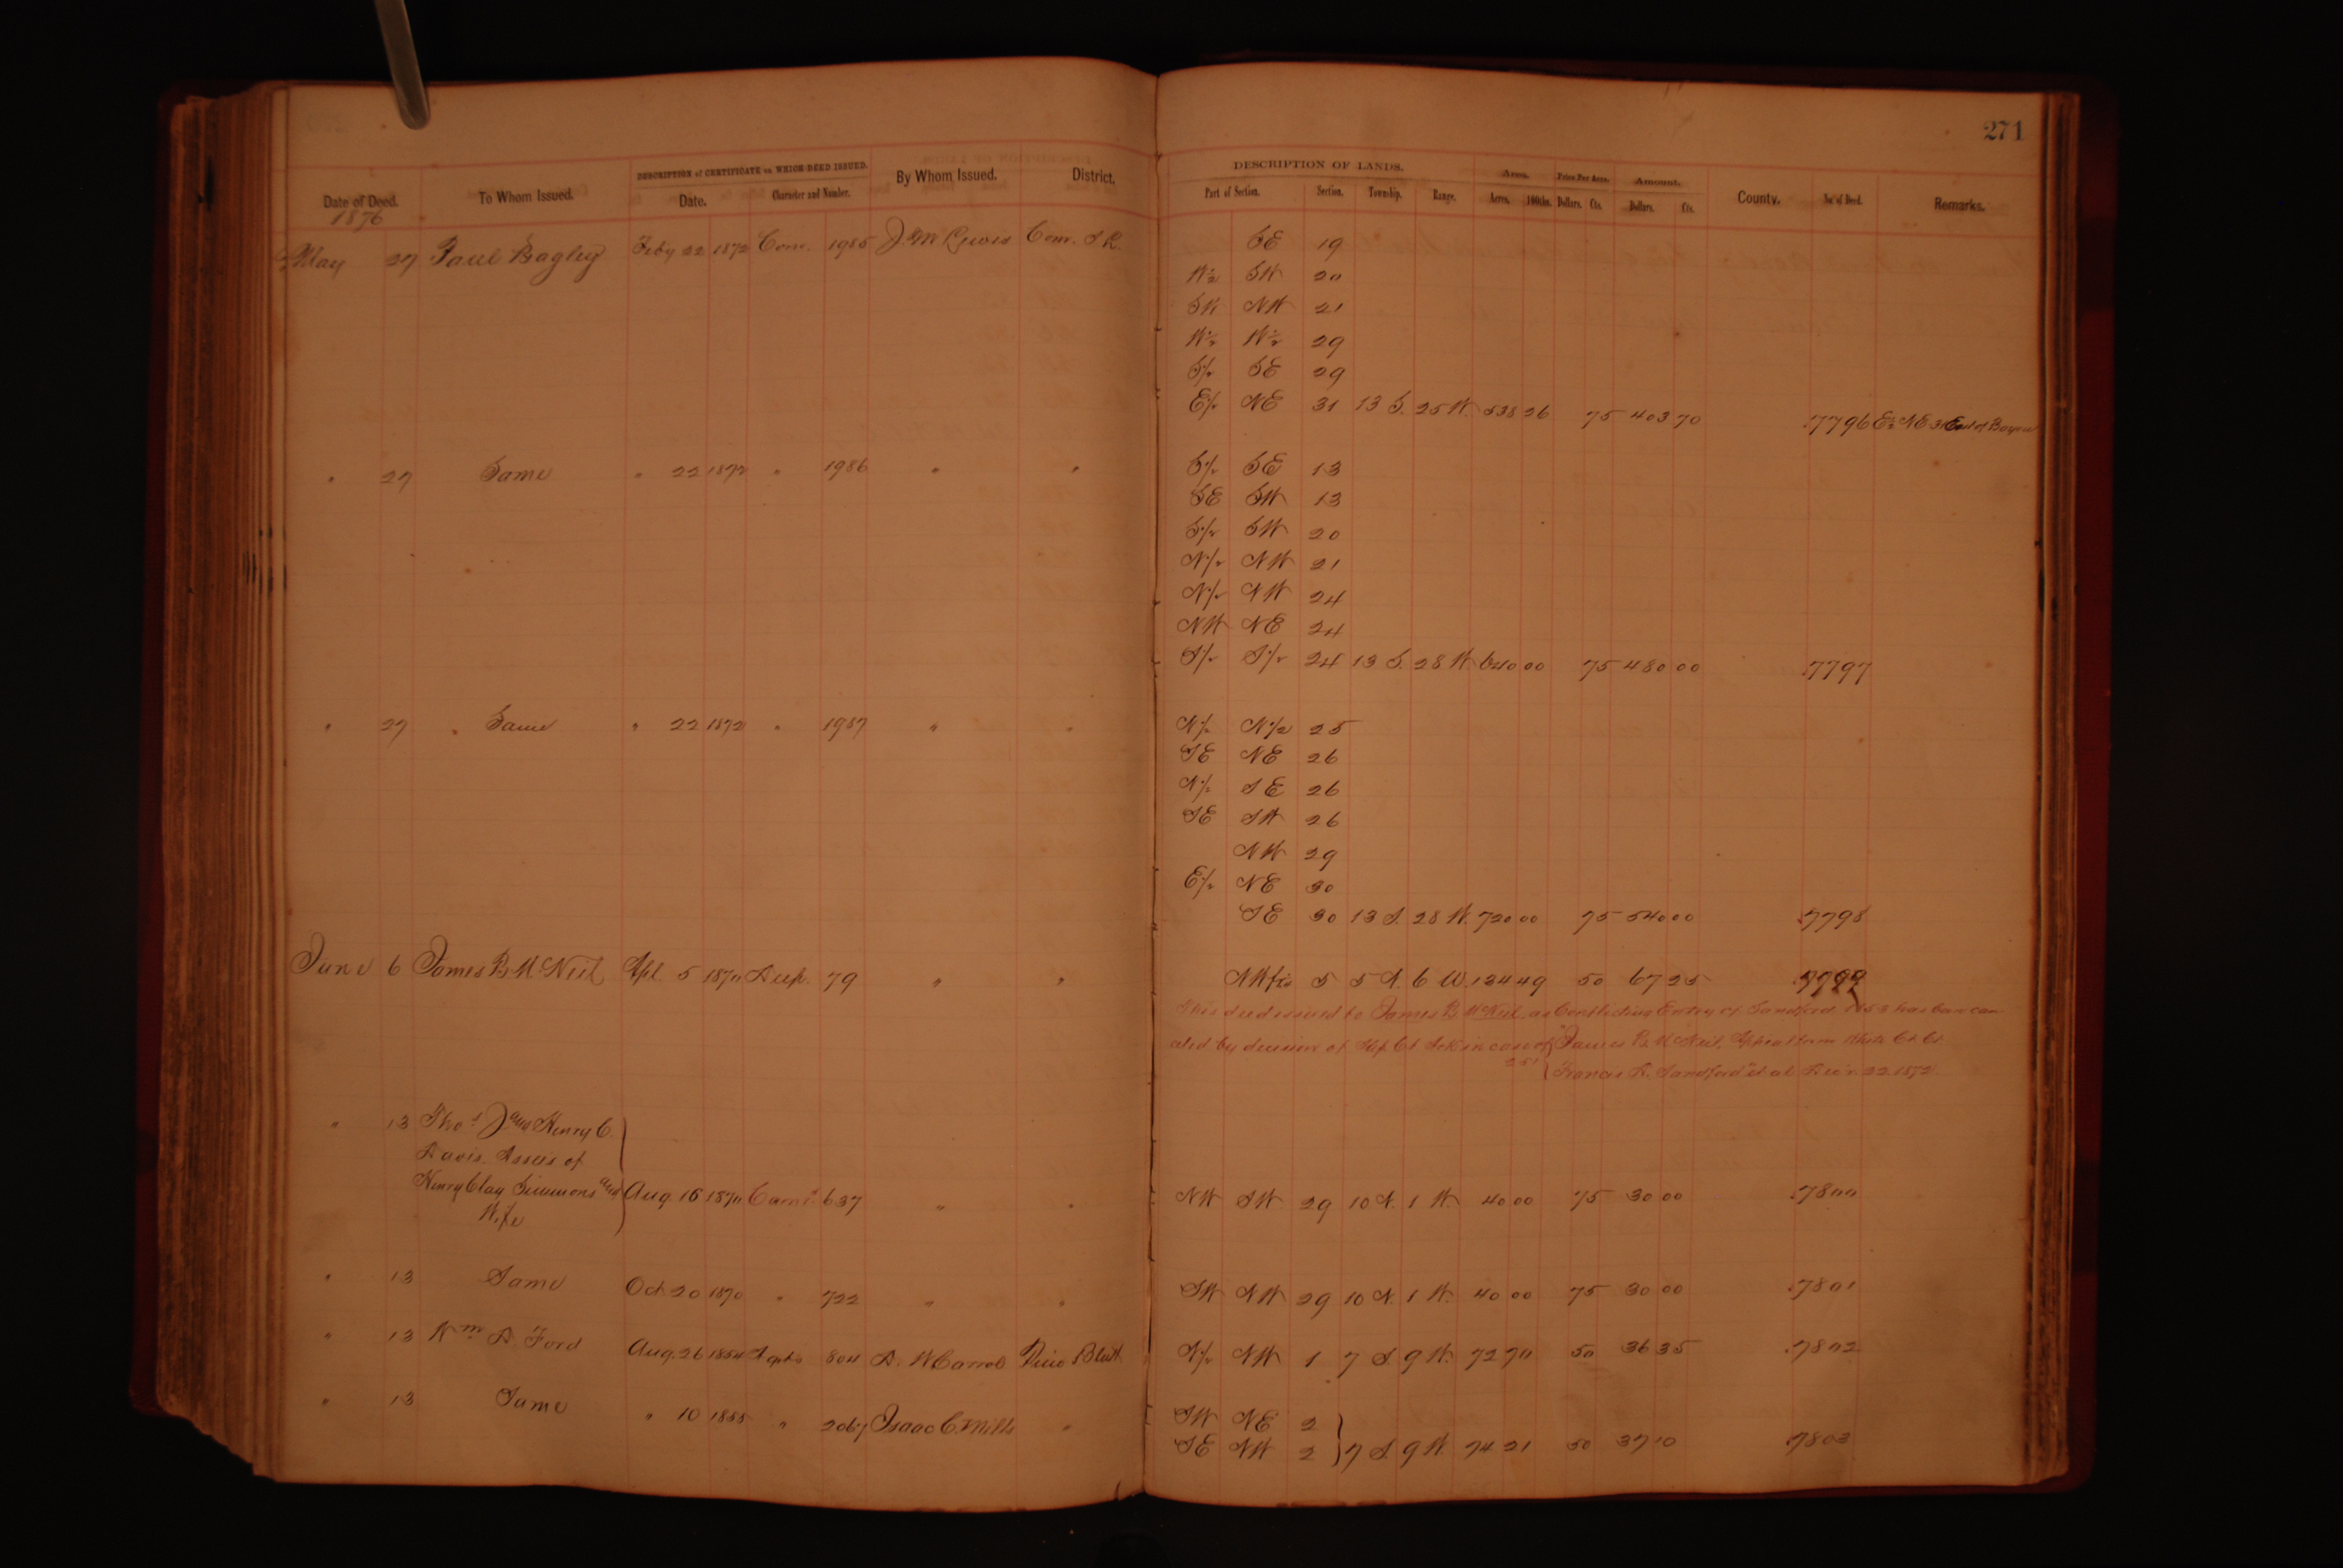 271
DESCRIPTION of CERTIFICATE on WHICH DEED ISSUED. DESCRIPTION OF LANDS. Area. Price Per Acre. Amount.
Date of Deed. To Whom Issued. Date. Character and Number. By Whom Issued. District. Part of Section. Section. Township. Range. Acres. 100ths. Dollars. Cts. Dollars. Cts. County. No. of Deed. Remarks.
1876
May 27 Paul Bagley Feby 22 1872 Com. 1985 J. M Lewis Com. S. R. SE 19
W½ SW 20
SW NW 21
W½ W½ 29
S½ SE 29
E½ NE 31 13 S. 25 W. 538 26 75 403 70 7796 E½ NE 31 East of Bayou
" 27 Same " 22 1872 " 1986 " " S½ SE 13
SE SW 13
S½ SW 20
N½ NW 21
N½ NW 24
NW NE 24
S½ S½ 24 13 S. 28 W. 640 00 75 480 00 7797
" 27 " Same " 22 1872 " 1987 " " N½ N½ 25
SE NE 26
N½ SE 26
SE SW 26
NW 29
E½ NE 30
SE 30 13 S. 28 W. 720 00 75 540 00 7798
June 6 James B. McNeil Apl. 5 1870 Dup. 79 " " NW frc 5 5 N. 6 W. 134 49 50 67 25 7799
This deed issued to James B. McNeil, as Conflicting Entry of Sandford has been can
celed by decision of Sup. Ct in case of James B. McNeil, Appeal from White Ct. Ct.
Francis R. Sandford et al Dec'r. 22 1872
" 13 Thos J and Henry C.
Davis. Assees of
Henry Clay Simmons and
Wife Aug 16 1870 637 " " NW SW 29 10 N. 1 W. 40 00 75 30 00 7800
" 13 Same Oct 20 1870 " 722 " " SW NW 29 10 N. 1 W. 40 00 75 30 00 7801
" 13 Wm D. Ford Aug. 26 1854 804 D. W Carroll Pine Bluff N½ NW 1 7 S. 9 W. 72 70 50 36 35 7802
" 13 Same " 10 1855 " 2067 Isaac C. Mills " SW NE 2
SE NW 2 7 S. 9 W. 74 21 50 37 10 7803